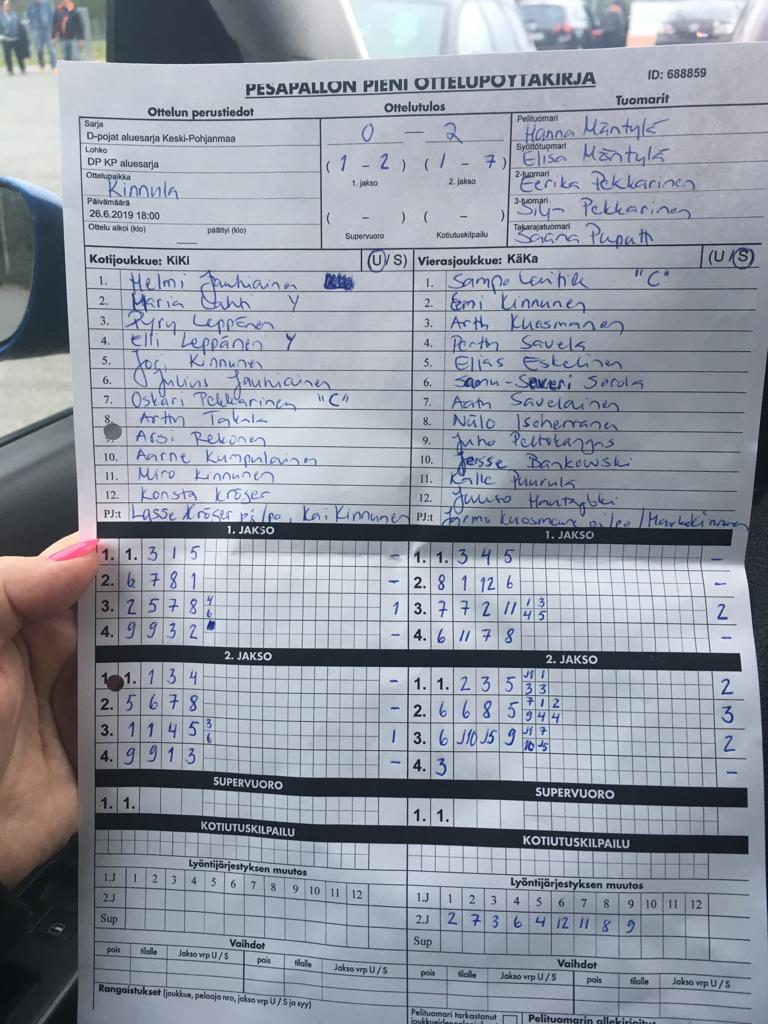 PESÄPALLON PIENI OTTELUPÖYTÄKIRJA
ID: 688859
Ottelun perustiedot
Sarja
D-pojat aluesarja Keski-Pohjanmaa
Lohko
DP KP aluesarja
Ottelupaikka
Kinnula
Päivämäärä
26.6.2019 18:00
Ottelu alkoi (klo) päättyi (klo)
Ottelutulos
0 – 2
(1 - 2) (1 - 7)
1. jakso 2. jakso
( - ) ( - )
Supervuoro Kotiutuskilpailu
Tuomarit
Pelituomari
Hanna Mäntylä
Syöttötuomari
Elisa Mäntylä
2-tuomari
Eerika Pekkarinen
3-tuomari
Pekkarinen
Takarajatuomari
Saana
Kotijoukkue: KiKi (U/S)
1. Helmi Jauhiainen
2. Maria Lahti Y
3. Pyry Leppänen
4. Elli Leppänen Y
5. Joni Kinnunen
6. Julius Jauhiainen
7. Oskari Pekkarinen "C"
8. Arttu Takala
9. Arsi Rekonen
10. Aarne Kumpulainen
11. Miro Kinnunen
12. Konsta Kröger
PJ:t Lasse Kröger pj/po, Kai Kinnunen
Vierasjoukkue: KäKa (U/S)
1. Sampo "C"
2. Emi Kinnunen
3. Kuosmanen
4. Savela
5. Elias Eskelinen
6. Sorola
7. Savelainen
8. Ischerranen
9. Juho Peltokangas
10. Jesse Bankowski
11. Kalle Puurula
12.
PJ:t Jarmo Kuosmanen pj/po / Marko Kinnunen
1. JAKSO
1. 1. 3 1 5 –
2. 6 7 8 1 –
3. 2 5 7 8 4 6 1
4. 9 9 3 2 –
1. JAKSO
1. 1. 3 4 5 –
2. 8 1 12 6 –
3. 7 7 2 11 1 3 4 5 2
4. 6 11 7 8 –
2. JAKSO
1. 1. 1 3 4 –
2. 5 6 7 8 –
3. 1 1 4 5 3 6 1
4. 9 9 1 3 –
2. JAKSO
1. 1. 2 3 5 J11 1 3 3 2
2. 6 6 8 5 7 1 2 9 4 4 3
3. 6 J10 J5 9 J11 7 10 J5 2
4. 3 –
SUPERVUORO
1. 1.
SUPERVUORO
1. 1.
KOTIUTUSKILPAILU
KOTIUTUSKILPAILU
Lyöntijärjestyksen muutos
1.J 1 2 3 4 5 6 7 8 9 10 11 12
2.J
Sup
Lyöntijärjestyksen muutos
1.J 1 2 3 4 5 6 7 8 9 10 11 12
2.J 2 7 3 6 4 12 11 8 9
Sup
Vaihdot
pois tilalle Jakso vrp U / S pois tilalle Jakso vrp U / S
Vaihdot
pois tilalle Jakso vrp U / S pois tilalle Jakso vrp U / S
Rangaistukset (joukkue, pelaaja nro, jakso vrp U / S ja syy)
Pelituomari tarkastanut
Pelituomarin allekirjoitus